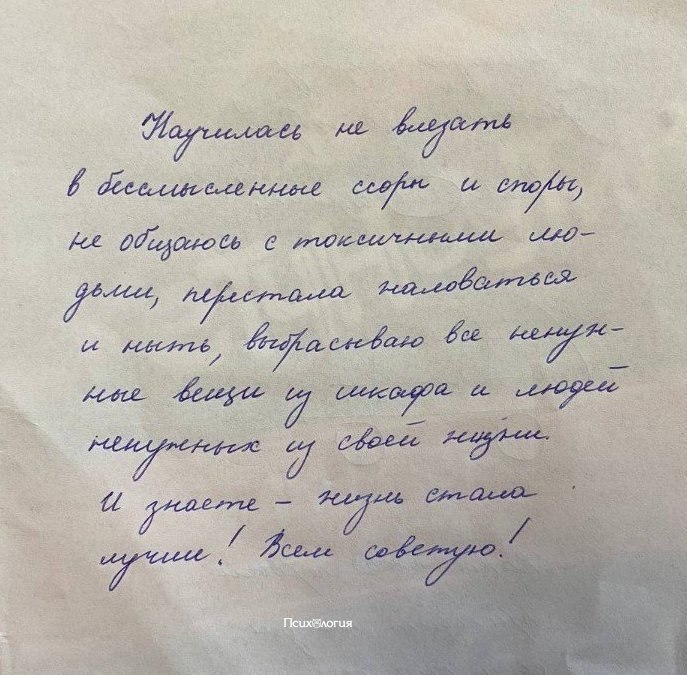 Научилась не влезать
в бессмысленные ссоры и споры,
не общаюсь с токсичными лю-
дьми, перестала жаловаться
и ныть, выбрасываю все ненуж-
ные вещи из шкафа и людей
ненужных из своей жизни.
И знаете – жизнь стала
лучше! Всем советую!
Психология